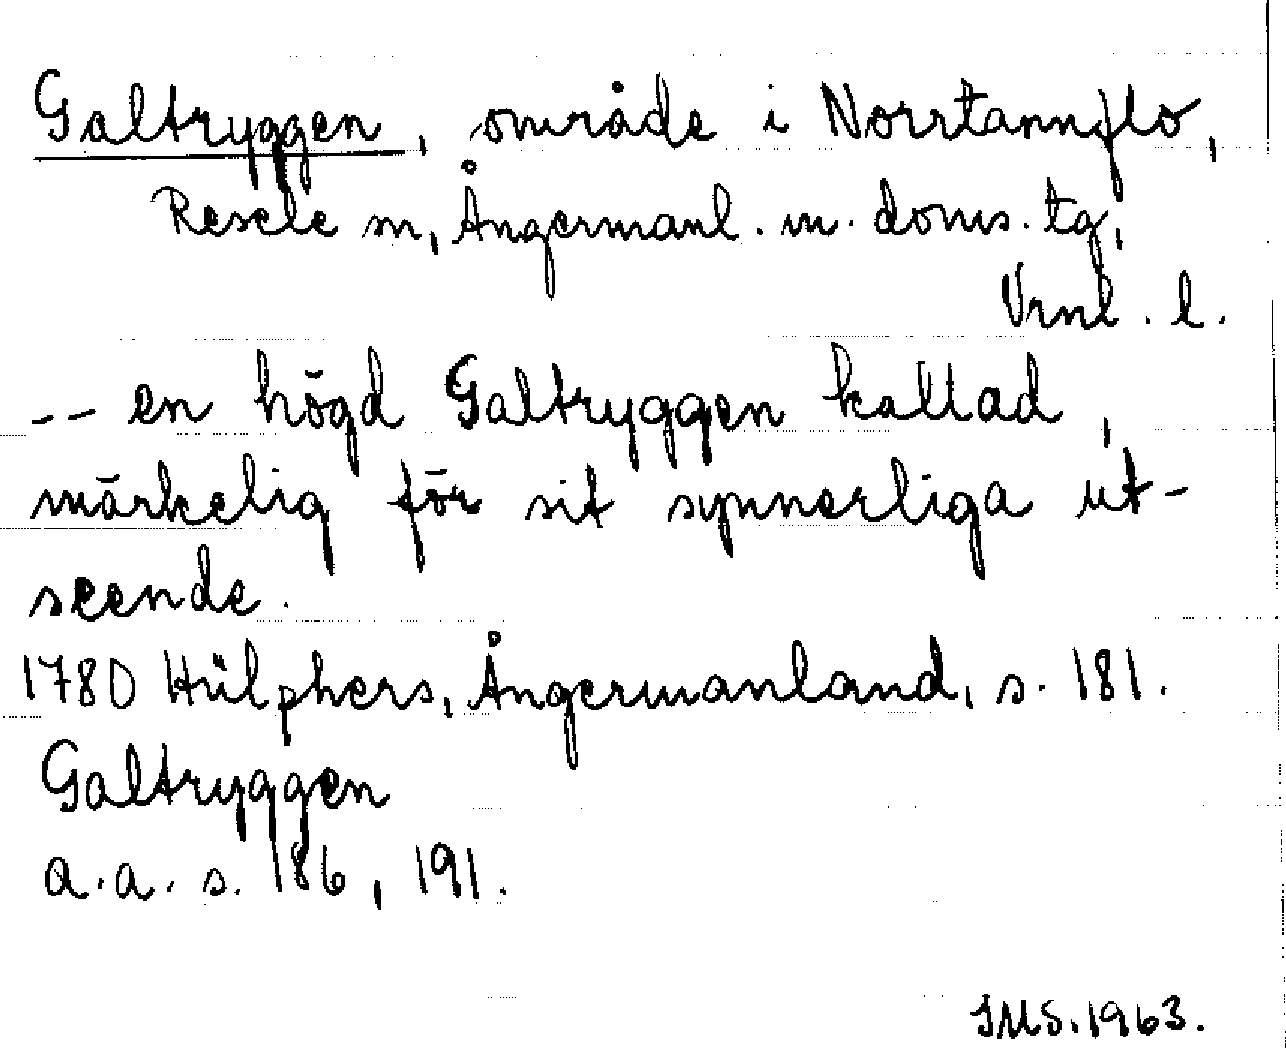 Galtryggen, område i Norrtannflo,
Resele sn, Ångermanl. m. doms. tg,
Vrnl. l.
-- en högd Galtryggen kallad,
märkelig för sit synnerliga ut-
seende.
1780 Hülphers, Ångermanland, s. 181.
Galtryggen
a.a. s. 186, 191.
IMS. 1963.